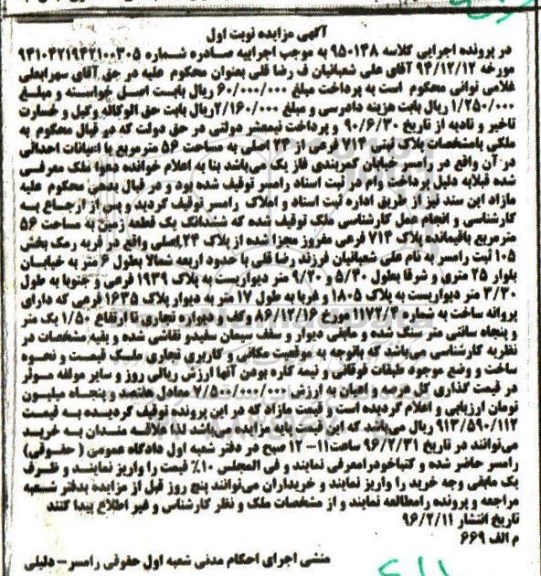 آگهی مزایده نوبت اول
در پرونده اجرایی کلاسه ۹۵۰۱۴۸ به موجب اجراییه صادره شماره ۹۳۱۰۴۲۱۹۴۲۱۰۰۳۰۵
مورخه ۹۴/۱۲/۱۲ آقای علی شعبانیان ف رضا قلی بعنوان محکوم علیه در حق آقای سهرابعلی
غلامی توانی محکوم است به پرداخت مبلغ ۶۰/۰۰۰/۰۰۰ ریال بابت اصل خواسته و مبلغ
۱/۲۵۰/۰۰۰ ریال بابت هزینه دادرسی و مبلغ ۲/۱۶۰/۰۰۰ریال بابت حق الوکاله وکیل و خسارت
تاخیر و تادیه از تاریخ ۹۰/۶/۳۰ و پرداخت نیمعشر دولتی در حق دولت که در قبال محکوم به
ملکی بامشخصات پلاک ثبتی ۷۱۴ فرعی از ۲۳ اصلی به مساحت ۵۶ مترمربع با اعیانات احداثی
در آن واقع در رامسر خیابان کمربندی فاز یک می‌باشد بنا به اعلام خوانده دعوا ملک معرفی
شده قبلابه دلیل پرداخت وام در ثبت اسناد رامسر توقیف شده بود و در قبال بدهی محکوم علیه
مازاد این سند نیز از طریق اداره ثبت اسناد و املاک رامسر توقیف گردید پس از ارجاع به
کارشناسی و انجام عمل کارشناسی ملک توقیف شده که ششدانگ یک قطعه زمین به مساحت ۵۶
مترمربع باقیمانده پلاک ۷۱۴ فرعی مفروز مجزا شده از پلاک ۲۳ اصلی واقع در قریه رمک بخش
۱۰۵ ثبت رامسر به نام علی شعبانیان فرزند رضا قلی با حدود اربعه شمالا بطول ۶ متر به خیابان
بلوار ۲۵ متری و شرقا بطول ۵/۳۰ و ۹/۲۰ متر دیواریست به پلاک ۱۹۳۹ فرعی و جنوبا به طول
۳/۳۰ متر دیواریست به پلاک ۱۸۰۵ و غربا به طول ۱۷ متر به دیوار پلاک ۱۶۳۵ فرعی که دارای
پروانه ساخت به شماره ۱۱۷۲/۲ مورخ ۸۶/۱۲/۱۶ وکف و دیواره تجاری تا ارتفاع ۱/۵۰ یک متر
و پنجاه سانتی متر سنگ شده و مابقی دیوار و سقف سیمان سفیدو نقاشی شده و بقیه مشخصات در
نظریه کارشناسی می‌باشد که باتوجه به موقعیت مکانی و کاربری تجاری ملک قیمت و نحوه
ساخت و وضع موجود طبقات فوقانی و نیمه کاره بودن آنها ارزش ریالی روز و سایر مولفه موثر
در قیمت گذاری کل عرصه و اعیان به ارزش ۷/۵۰۰/۰۰۰/۰۰۰ معادل هفتصد و پنجاه میلیون
تومان ارزیابی و اعلام گردیده است و قیمت مازاد که در این پرونده توقیف گردیده به قیمت
۹۱۳/۵۹۰/۱۱۲ ریال می‌باشد که این قیمت پایه مزایده می‌باشد لذا علاقه مندان به خرید
می‌توانند در تاریخ ۹۶/۲/۳۱ ساعت۱۱-۱۲ صبح در دفتر شعبه اول دادگاه عمومی (حقوقی)
رامسر حاضر شده و کتباخودرامعرفی نمایند و فی المجلس ۱۰٪ قیمت را واریز نمایند و ظرف
یک ماهه مابقی وجه خرید را واریز نمایند و خریداران می‌توانند پنج روز قبل از مزایده بدفتر شعبه
مراجعه و پرونده رامطالعه نمایند و از مشخصات ملک و نظر کارشناس و غیر اطلاع پیدا کنند
تاریخ انتشار ۹۶/۲/۱۱
م الف ۶۶۹
منشی اجرای احکام مدنی شعبه اول حقوقی رامسر-دلیلی